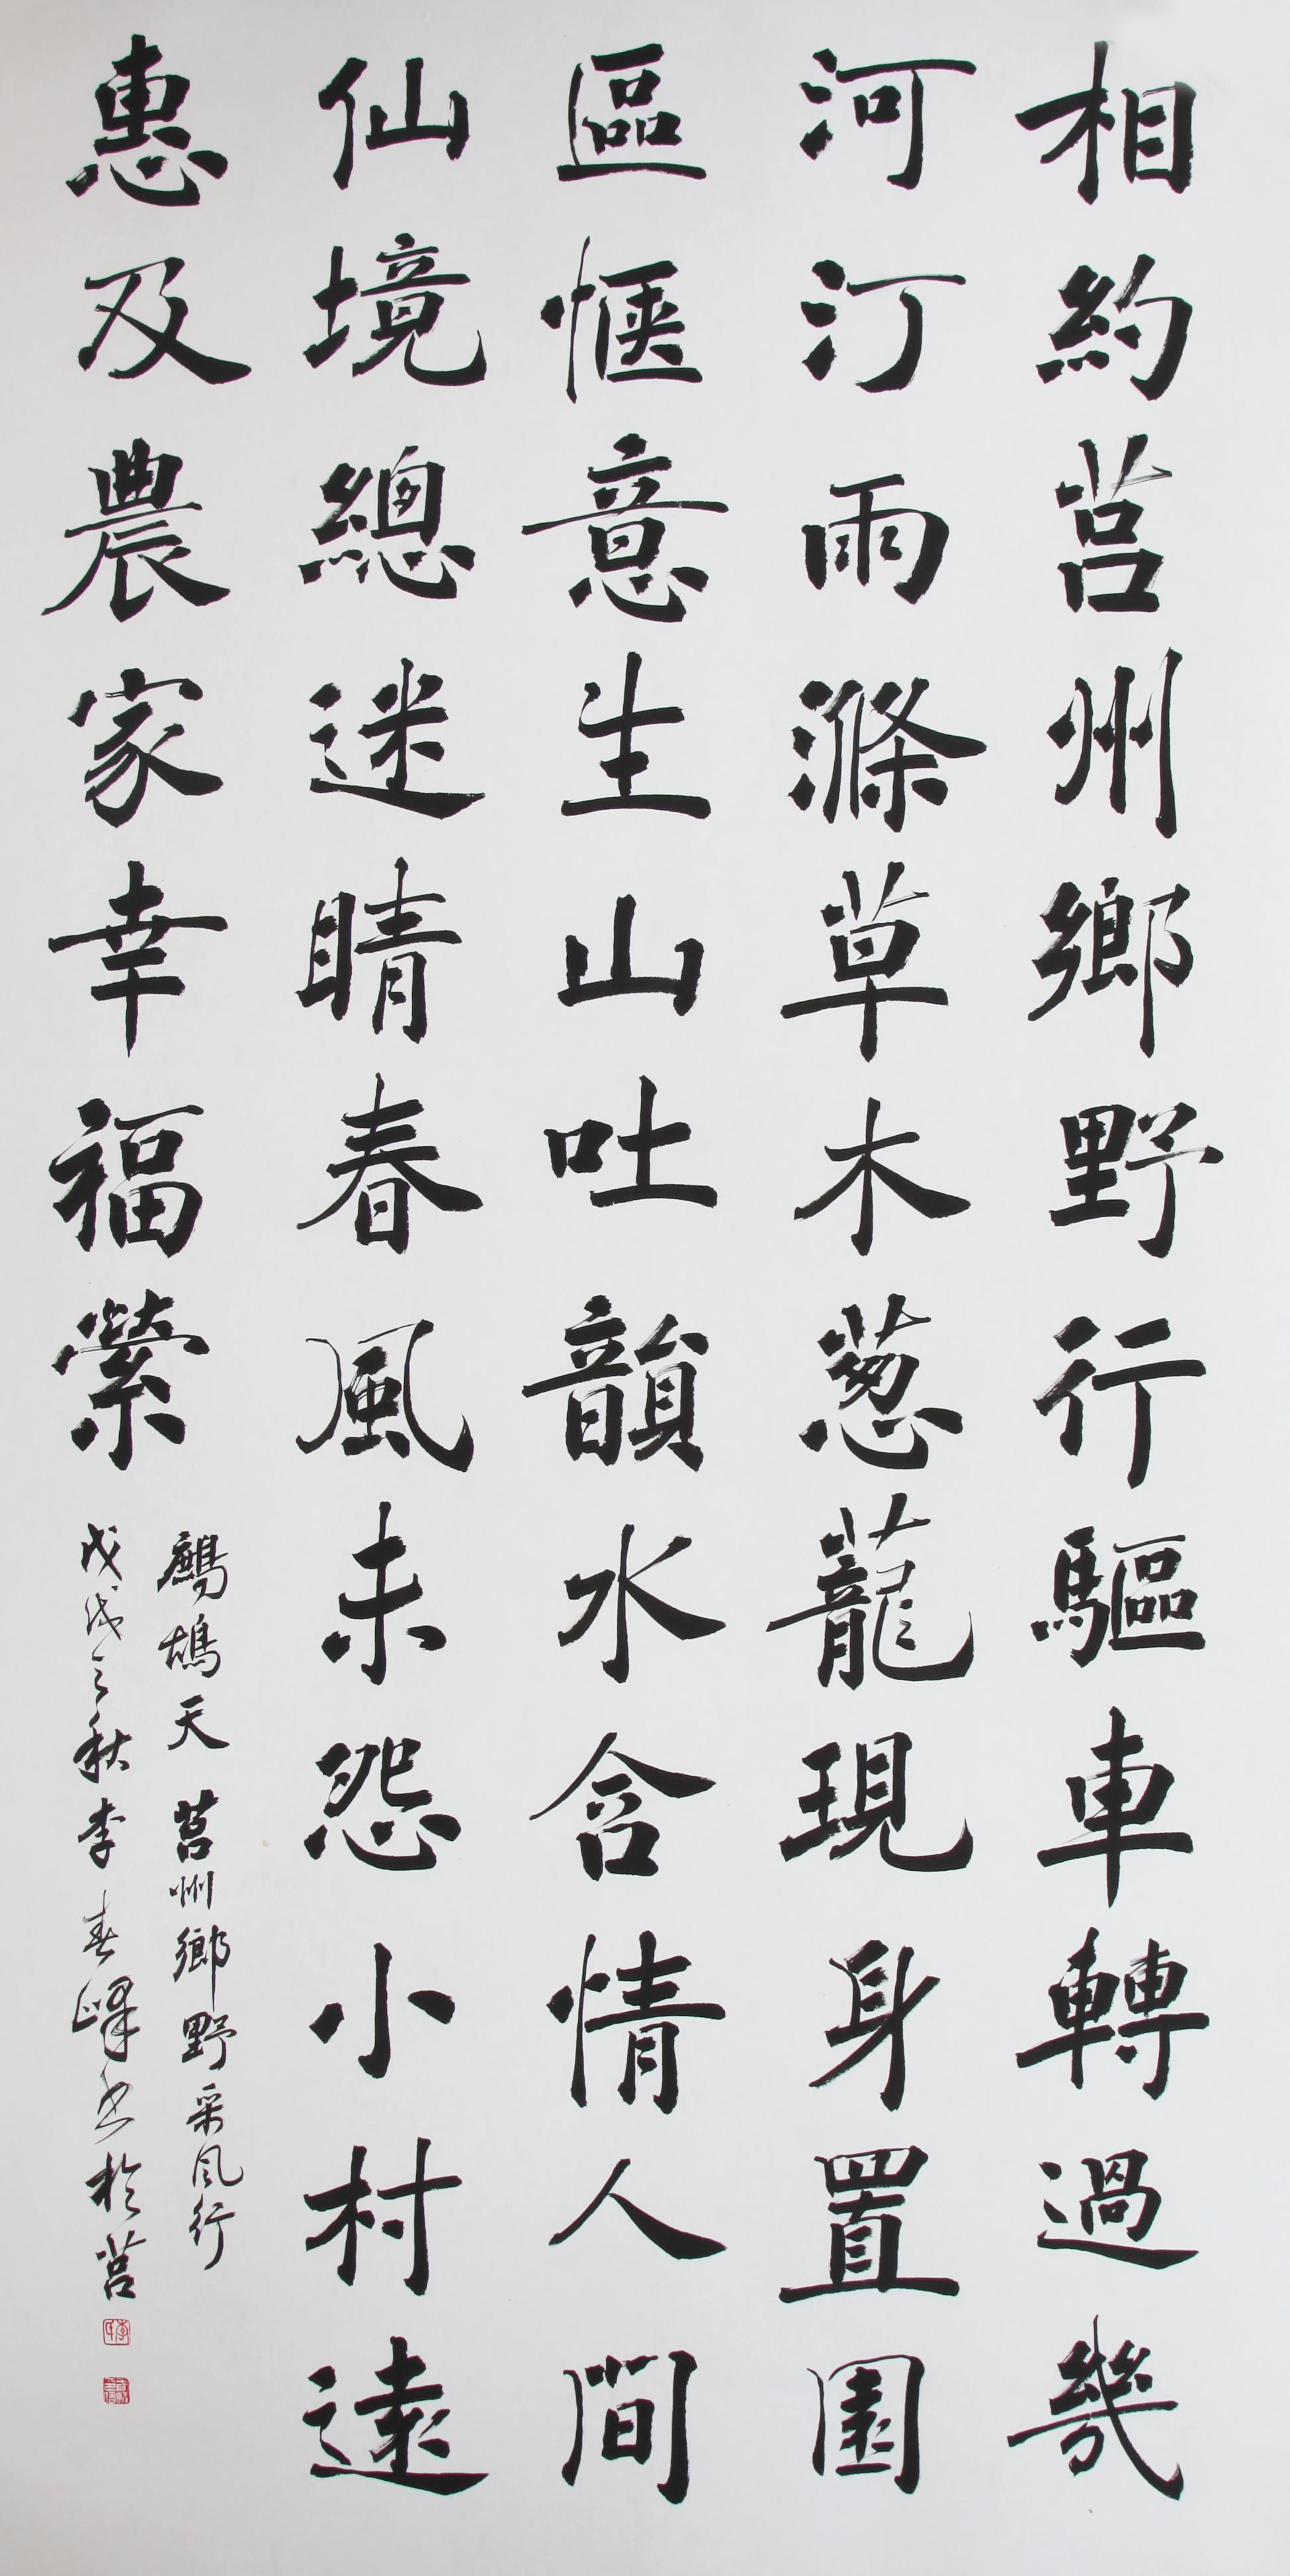 相約莒州鄉野行驅車轉過幾
河汀雨滌草木葱蘢現身置園
區愜意生山吐韻水含情人間
仙境總迷睛春風未怨小村遠
惠及農家幸福縈
鷓鴣天 莒州鄉野采風行
戊戌之秋李春峰書於莒